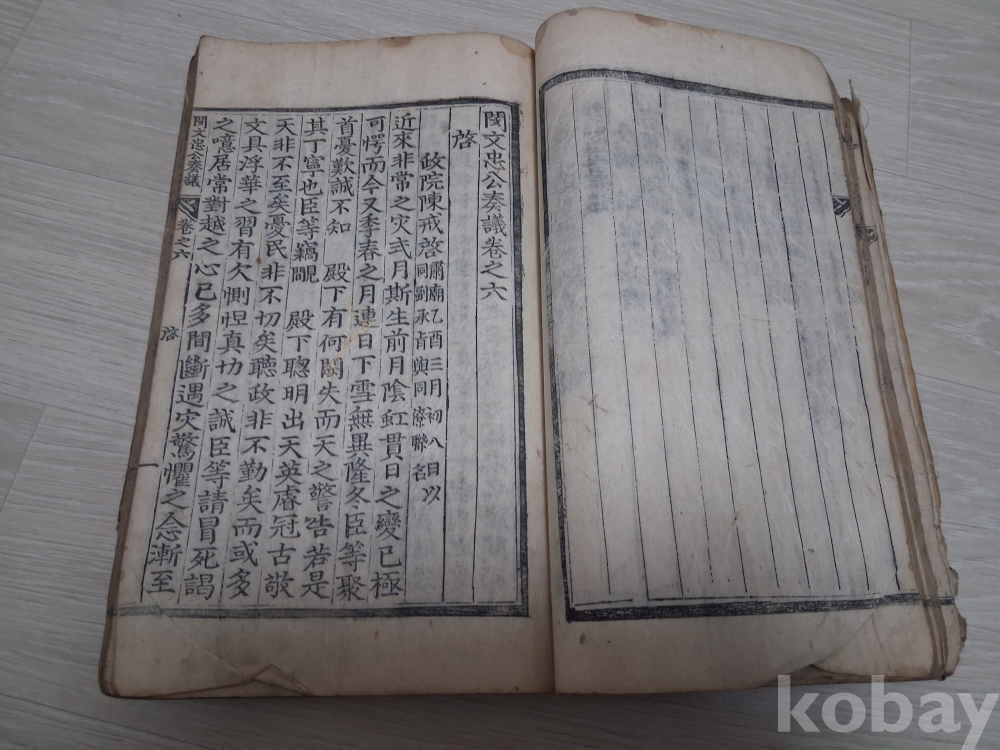 閔文忠公奏議卷之六
啓
政院陳戒啓
肅廟乙酉三月初八日以
同副承旨與同僚聯名
近來非常之灾式月斯生前月陰虹貫日之變已極
可愕而今又季春之月連日下雪無異隆冬臣等聚
首憂歎誠不知 殿下有何闕失而天之警告若是
其丁寧也臣等竊覵 殿下聰明出天英睿冠古敬
天非不至矣憂民非不切矣聽政非不勤矣而或多
文具浮華之習有欠惻怛真切之誠臣等請冒死謁
之噫居常對越之心已多間斷遇灾驚懼之念漸至
閔文忠公奏議
卷之六
啓
一
kobay